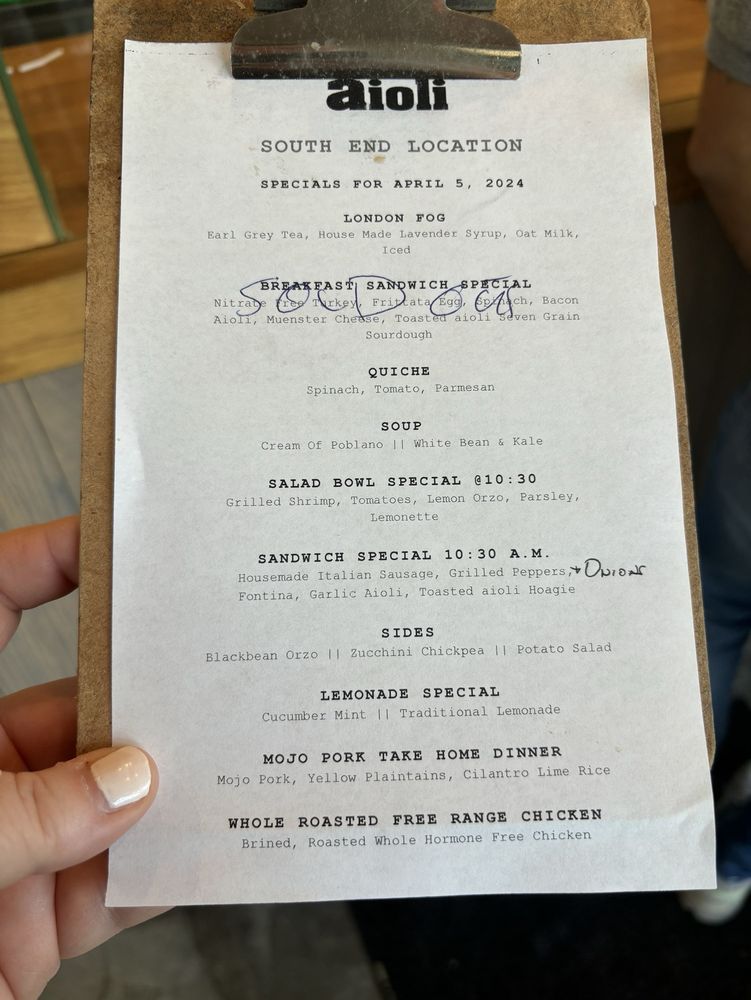 aioli
SOUTH END LOCATION
SPECIALS FOR APRIL 5, 2024
LONDON FOG
Earl Grey Tea, House Made Lavender Syrup, Oat Milk,
Iced
BREAKFAST SANDWICH SPECIAL
SOLD OUT
Nitrate Free Turkey, Frittata Egg, Spinach, Bacon
Aioli, Muenster Cheese, Toasted aioli Seven Grain
Sourdough
QUICHE
Spinach, Tomato, Parmesan
SOUP
Cream Of Poblano || White Bean & Kale
SALAD BOWL SPECIAL @10:30
Grilled Shrimp, Tomatoes, Lemon Orzo, Parsley,
Lemonette
SANDWICH SPECIAL 10:30 A.M.
Housemade Italian Sausage, Grilled Peppers, + Onions
Fontina, Garlic Aioli, Toasted aioli Hoagie
SIDES
Blackbean Orzo || Zucchini Chickpea || Potato Salad
LEMONADE SPECIAL
Cucumber Mint || Traditional Lemonade
MOJO PORK TAKE HOME DINNER
Mojo Pork, Yellow Plaintains, Cilantro Lime Rice
WHOLE ROASTED FREE RANGE CHICKEN
Brined, Roasted Whole Hormone Free Chicken